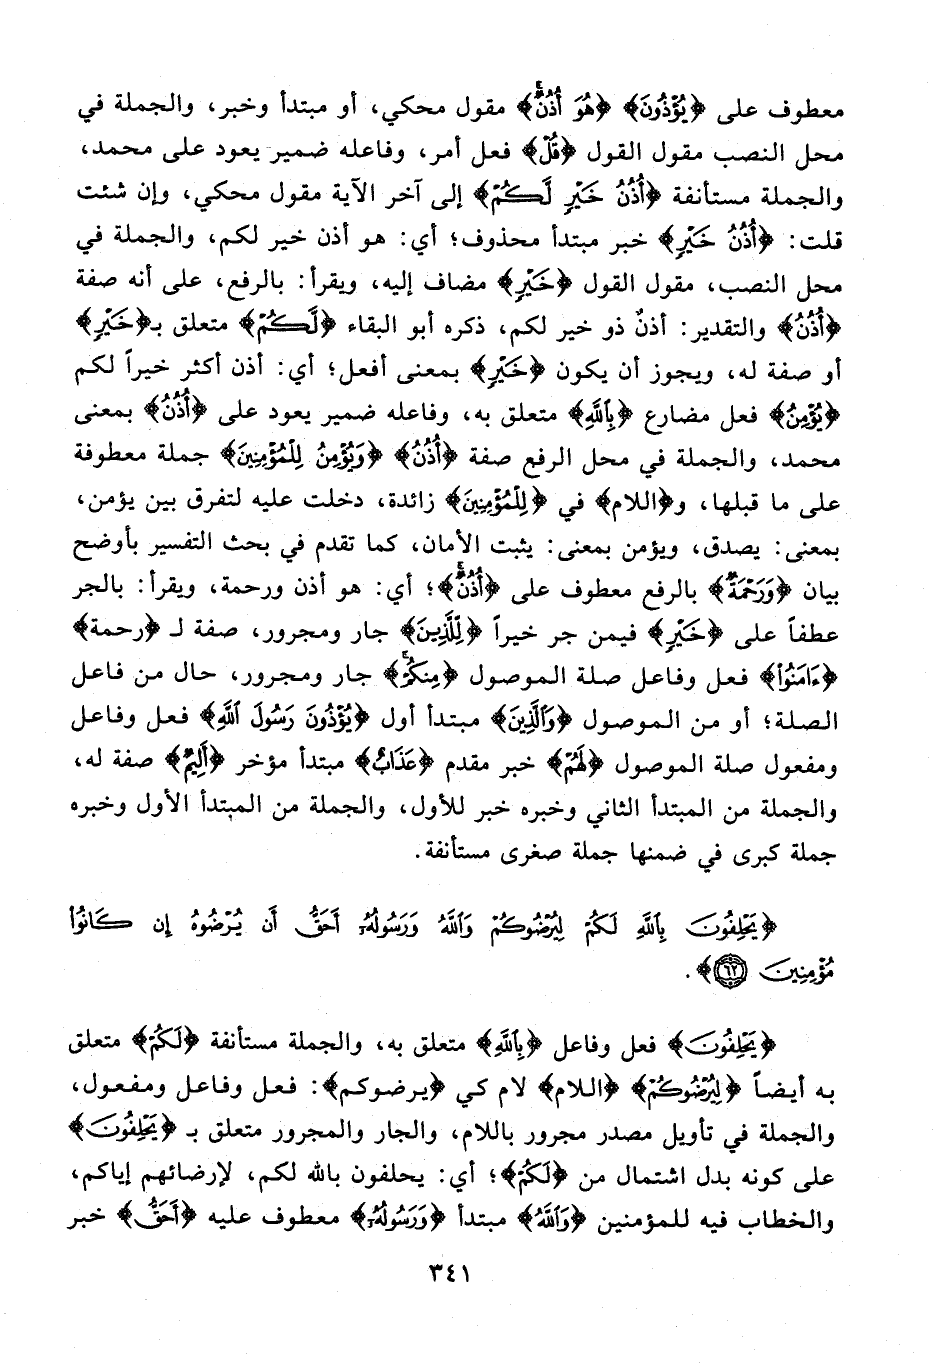 معطوف على ﴿يُؤْذُونَ﴾ ﴿هُوَ أُذُنٌۚ﴾ مقول محكي، أو مبتدأ وخبر، والجملة في
محل النصب مقول القول ﴿قُلْ﴾ فعل أمر، وفاعله ضمير يعود على محمد،
والجملة مستأنفة ﴿أُذُنُ خَيْرٍ لَّكُمْ﴾ إلى آخر الآية مقول محكي، وإن شئت
قلت: ﴿أُذُنُ خَيْرٍ﴾ خبر مبتدأ محذوف؛ أي: هو أذن خير لكم، والجملة في
محل النصب، مقول القول ﴿خَيْرٍ﴾ مضاف إليه، ويقرأ: بالرفع، على أنه صفة
﴿أُذُنُ﴾ والتقدير: أذنٌ ذو خير لكم، ذكره أبو البقاء ﴿لَّكُمْ﴾ متعلق بـ﴿خَيْرٍ﴾
أو صفة له، ويجوز أن يكون ﴿خَيْرٍ﴾ بمعنى أفعل؛ أي: أذن أكثر خيراً لكم
﴿يُؤْمِنُ﴾ فعل مضارع ﴿بِاللَّهِ﴾ متعلق به، وفاعله ضمير يعود على ﴿أُذُنُ﴾ بمعنى
محمد، والجملة في محل الرفع صفة ﴿أُذُنُ﴾ ﴿وَيُؤْمِنُ لِلْمُؤْمِنِينَ﴾ جملة معطوفة
على ما قبلها، و﴿اللام﴾ في ﴿لِلْمُؤْمِنِينَ﴾ زائدة، دخلت عليه لتفرق بين يؤمن،
بمعنى: يصدق، ويؤمن بمعنى: يثبت الأمان، كما تقدم في بحث التفسير بأوضح
بيان ﴿وَرَحْمَةٌ﴾ بالرفع معطوف على ﴿أُذُنٌۚ﴾؛ أي: هو أذن ورحمة، ويقرأ: بالجر
عطفاً على ﴿خَيْرٍ﴾ فيمن جر خيراً ﴿لِّلَّذِينَ﴾ جار ومجرور، صفة لـ ﴿رحمة﴾
﴿ءَامَنُوا۟﴾ فعل وفاعل صلة الموصول ﴿مِنكُمْۚ﴾ جار ومجرور، حال من فاعل
الصلة؛ أو من الموصول ﴿وَالَّذِينَ﴾ مبتدأ أول ﴿يُؤْذُونَ رَسُولَ اللَّهِ﴾ فعل وفاعل
ومفعول صلة الموصول ﴿لَهُمْ﴾ خبر مقدم ﴿عَذَابٌ﴾ مبتدأ مؤخر ﴿أَلِيمٌ﴾ صفة له،
والجملة من المبتدأ الثاني وخبره خبر للأول، والجملة من المبتدأ الأول وخبره
جملة كبرى في ضمنها جملة صغرى مستأنفة.
﴿يَحْلِفُونَ بِاللَّهِ لَكُمْ لِيُرْضُوكُمْ وَاللَّهُ وَرَسُولُهُۥ أَحَقُّ أَن يُرْضُوهُ إِن كَانُوا۟
مُؤْمِنِينَ ٦٢﴾.
﴿يَحْلِفُونَ﴾ فعل وفاعل ﴿بِاللَّهِ﴾ متعلق به، والجملة مستأنفة ﴿لَكُمْ﴾ متعلق
به أيضاً ﴿لِيُرْضُوكُمْ﴾ ﴿اللام﴾ لام كي ﴿يرضوكم﴾: فعل وفاعل ومفعول،
والجملة في تأويل مصدر مجرور باللام، والجار والمجرور متعلق بـ ﴿يَحْلِفُونَ﴾
على كونه بدل اشتمال من ﴿لَكُمْ﴾؛ أي: يحلفون بالله لكم، لإرضائهم إياكم،
والخطاب فيه للمؤمنين ﴿وَاللَّهُ﴾ مبتدأ ﴿وَرَسُولُهُۥ﴾ معطوف عليه ﴿أَحَقُّ﴾ خبر
٣٤١